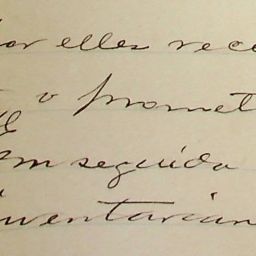 por elles rece
o promet
em seguida
inventarian